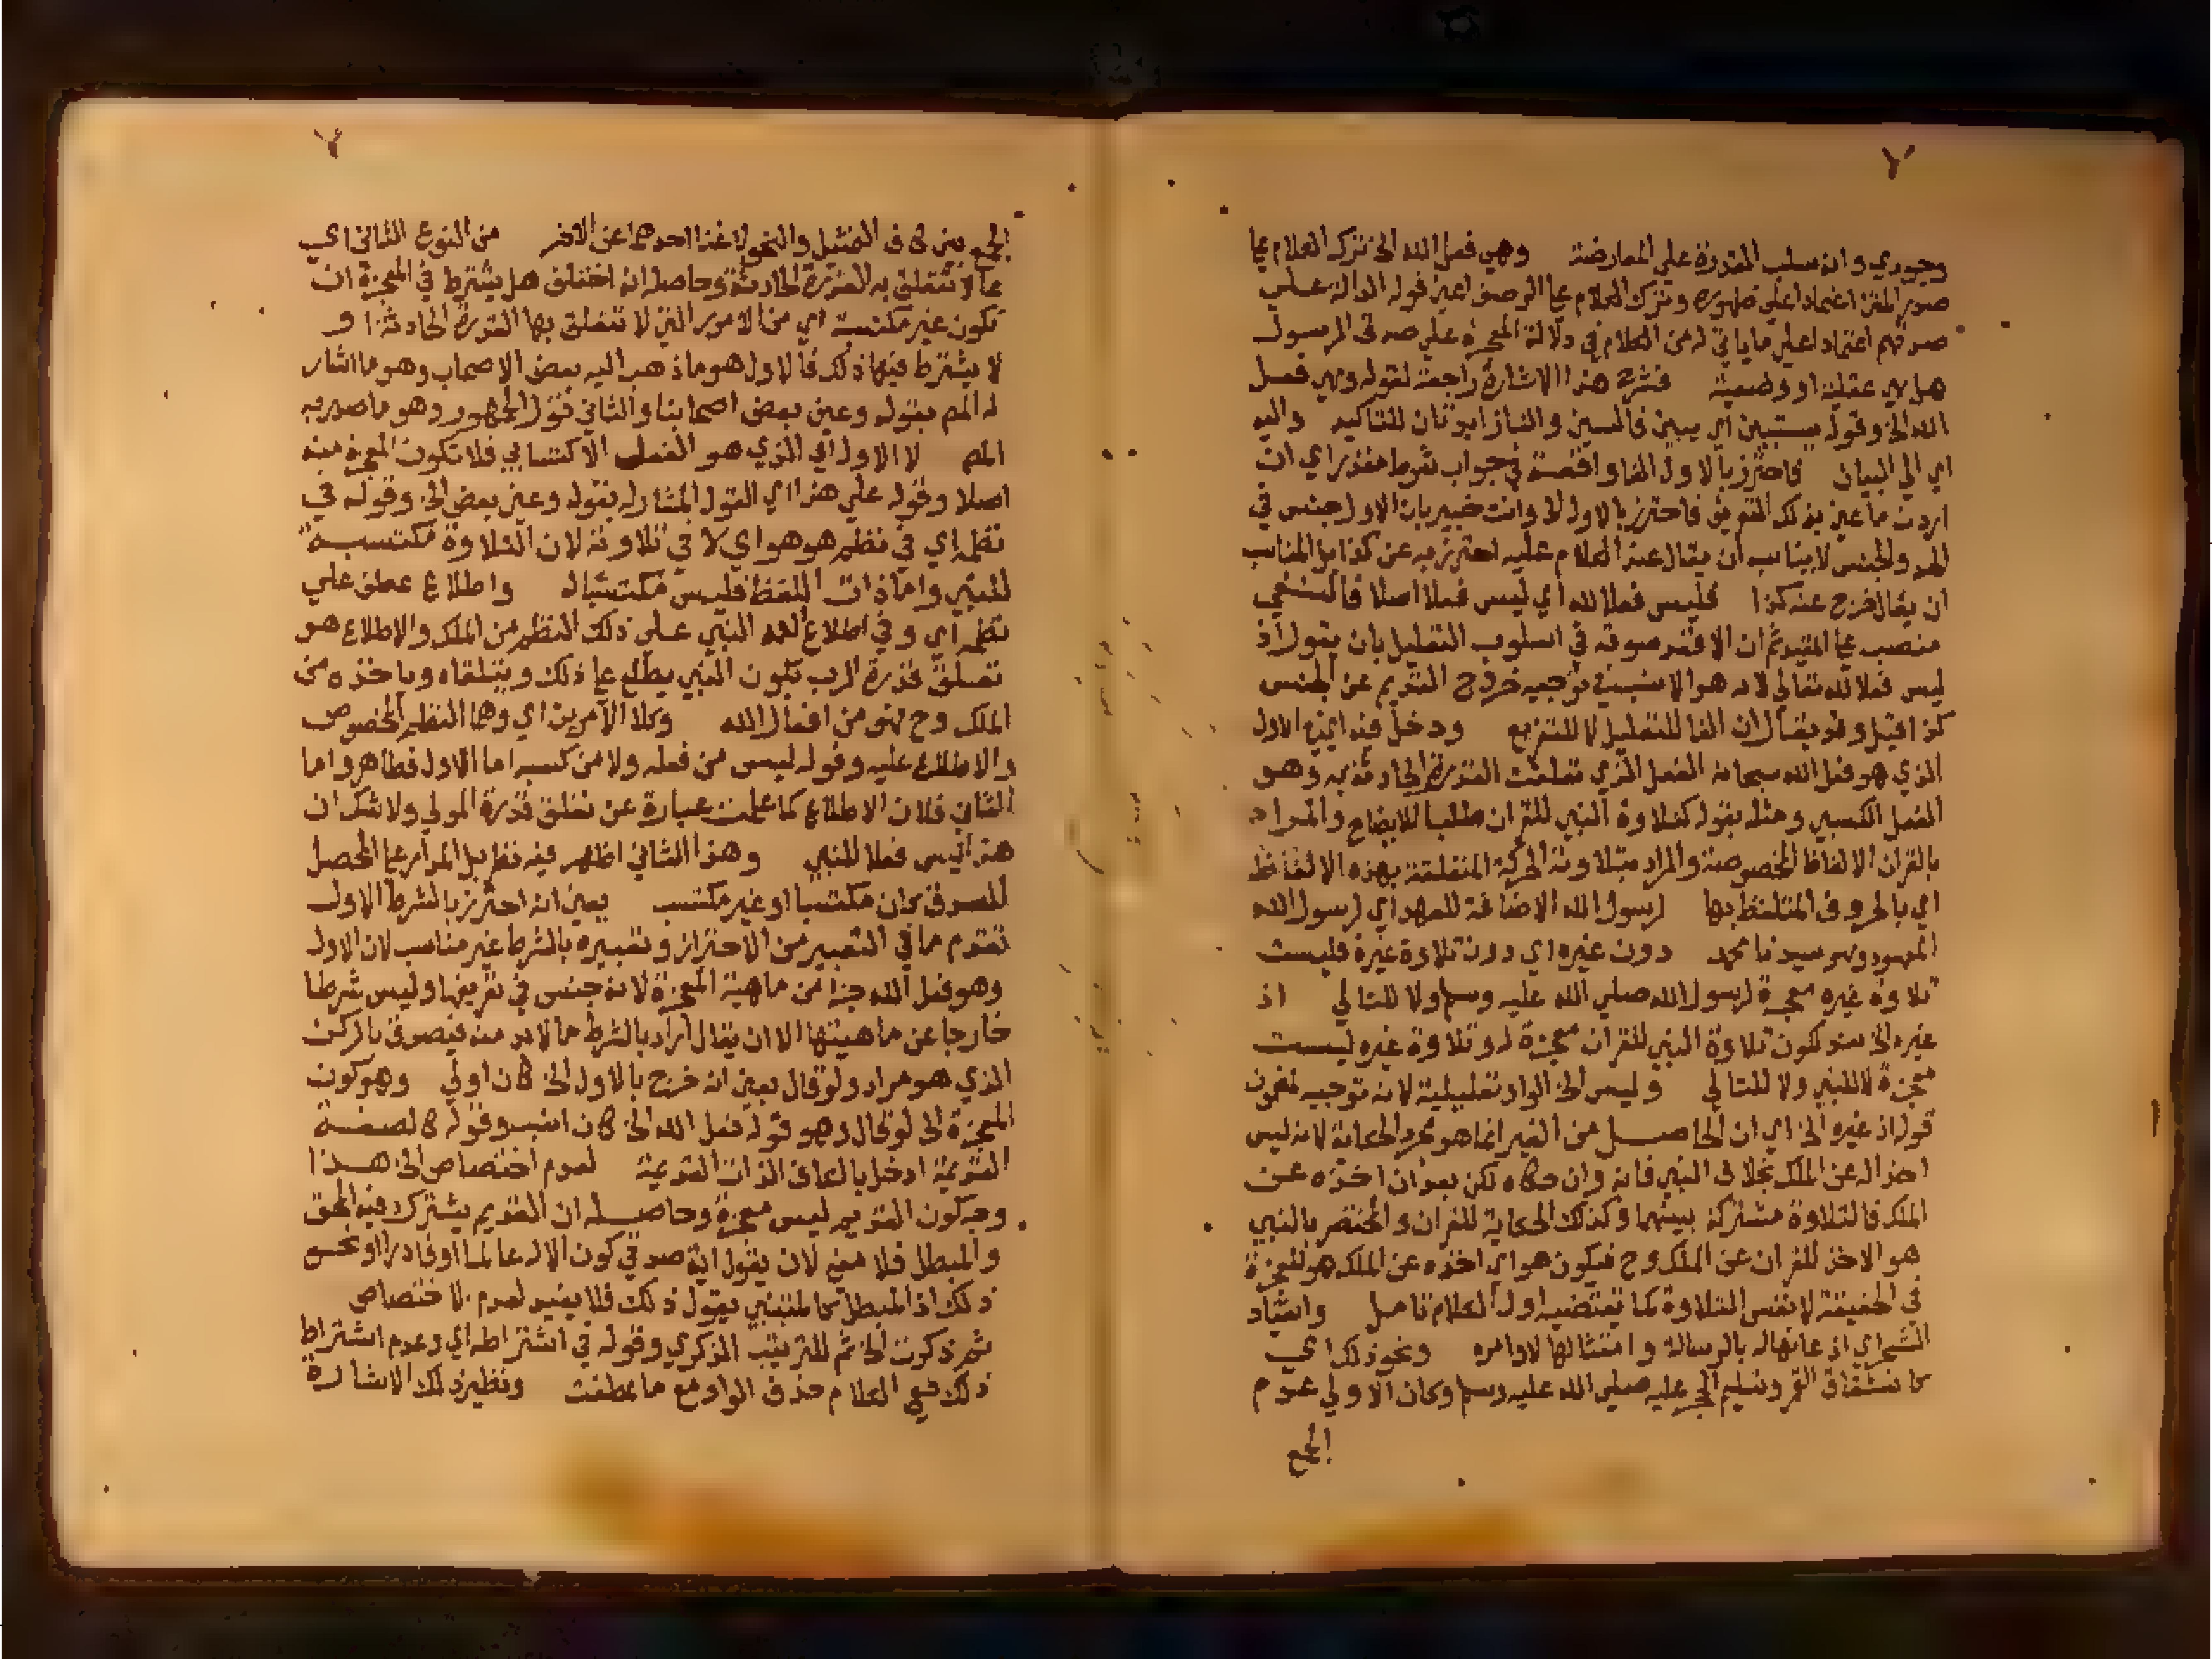 ٢
وجودي وانه سلب القدرة علي المعارضة وهي فعل الله الخ ترك الكلام علي
صور المتن اعتمادا علي ظهوره وترك الكلام علي الوصف اعني قوله الدالة علي
صدقهم اعتمادا علي ما ياتي له من الكلام في دلالة المعجزة علي صدق الرسول
هل هي عقلية او وضعية فشرح هذا الاشارة راجعة لقوله وهي فعل
الله الخ وقوله يستبين اي يبين فالسين والتا زايدتان للتاكيد واليه
اي الي البيان فاحترز بالاول الفا واقعة في جواب شرط مقدر اي ان
اردت ما عين بذلك التعريف فاحترز بالاول الخ وانت خبير بان الاول جنس في
الحد والجنس لا يناسب ان يقال عند الكلام عليه احترز به عن كذا بل المناسب
ان يقال خرج عنه كذا فليس فعلا لله اي ليس فعلا اصلا فالنفي
منصب علي المقيد ثم ان الاقعد صوته في اسلوب التعليل بان يقول اذ
ليس فعلا لله تعالي لانه هو الانسب في توجيه خروج القديم عن الجنس
كذا قيل وقد يقال ان الفا للتعليل لا للتفريع ودخل فيه اي في الاول
الذي هو فعل الله سبحانه الفعل الذي تعلقت القدرة الحادثة به وهو
الفعل الكسبي ومثله بقوله كتلاوة النبي للقران طلبا للايضاح والمراد
بالقران الالفاظ المخصوصة والمراد بتلاوته الحركة المتعلقة بهذه الالفاظ
اي بالحروف المتلفظ بها لرسول الله الاضافة للعهد اي لرسول الله
المعهود وهو سيدنا محمد دون غيره اي دون تلاوة غيره فليست
تلاوة غيره معجزة لرسول الله صلي الله عليه وسلم ولا للتالي اذ
غيره الخ سند لكون تلاوة النبي للقران معجزة له وتلاوة غيره ليست
معجزة لا للنبي ولا للتالي وليس الخ الواو تعليلية لانه توجيه لمضمون
قوله اذ غيره الخ اي ان الحاصل من الغير انما هو مجرد الحكاية لانه ليس
اخذا له عن الملك بخلاف النبي فانه وان حكاه لكن بعد ان اخذه عن
الملك فالتلاوة مشتركة بينهما وكذلك الحكاية للقران والمختص بالنبي
هو الاخذ للقران عن الملك وح فيكون هو اي اخذه عن الملك هو المعجزة
في الحقيقة لا نفس التلاوة كما يقتضيه اول الكلام تامل وانقياد
الشجر اي اذعانها له بالرسالة وامتثالها لاوامره ونحو ذلك اي
كانشقاق القمر وتسليم الحجر عليه صلي الله عليه وسلم وكان الاولي عدم
الجمع
الجمع بين كاف التمثيل والنحو لاغناء احدهما عن الاخر من النوع الثاني اي
ما لا تتعلق به القدرة الحادثة وحاصله انه اختلف هل يشترط في المعجزة ان
تكون غير مكتسبة اي من الامور التي لا تتعلق بها القدرة الحادثة او
لا يشترط فيها ذلك فالاول هو ما ذهب اليه بعض الاصحاب وهو ما اشار
له المصم بقوله وعين بعض اصحابنا والثاني قول الجمهور وهو ما صدر به
المصم لا الاول اي الذي هو الفعل الاكتسابي فلا تكون المعجزة منه
اصلا وقوله علي هذا اي القول المشار له بقوله وعين بعض الخ وقوله في
نظمه اي في نظمه هو هو اي لا في تلاوته لان التلاوة مكتسبة
للنبي واما ذات اللفظ فليس مكتسبا له واطلاع عطف علي
نظمه اي وفي اطلاع الله النبي علي ذلك النظم من الملك والاطلاع هو
تعلق قدرة الرب بكون النبي يطلع علي ذلك ويتلقاه وياخذه من
الملك وح فهو من افعال الله وكلا الامرين اي وهما النظم المخصوص
والاطلاع عليه وقوله ليس من فعله ولا من كسبه اما الاول فظاهر واما
الثاني فلان الاطلاع كما علمت عبارة عن تعلق قدرة المولي ولا شك ان
هذا ليس فعلا للنبي وهذا الثاني اظهر فيه نظر بل المدار علي المحصل
للصدق كان مكتسبا او غير مكتسب يعني انه احترز بالشرط الاول
تقدم ما في التعبير من الاحتراز وتعبيره بالشرط غير مناسب لان الاول
وهو فعل الله جزء من ماهية المعجزة لانه جنس في تعريفها وليس شرطا
خارجا عن ماهيتها الا ان يقال اراد بالشرط ما لا بد منه فيصدق بالركن
الذي هو مراد ولو قال يعني انه خرج بالاول الخ كان اولي وهو كون
المعجزة الخ لو قال وهو قوله فعل الله الخ كان انسب وقوله كالصفة
القديمة ادخل بالكاف الذات القديمة لعدم اختصاص الخ هذا
وجه كون القديم ليس معجزة وحاصله ان القديم يشترك فيه المحق
والمبطل فلا معني لان يقول اية صدقي كون الاله عالما او قادرا او نحو
ذلك اذ المبطل كالمتنبي يقول ذلك فلا يفيد لعدم الاختصاص
ثم ذكرت الخ ثم للترتيب الذكري وقوله في اشتراطه اي وعدم اشتراط
ذلك ففي الكلام حذف الواو مع ما عطفت ونظير ذلك الاشارة